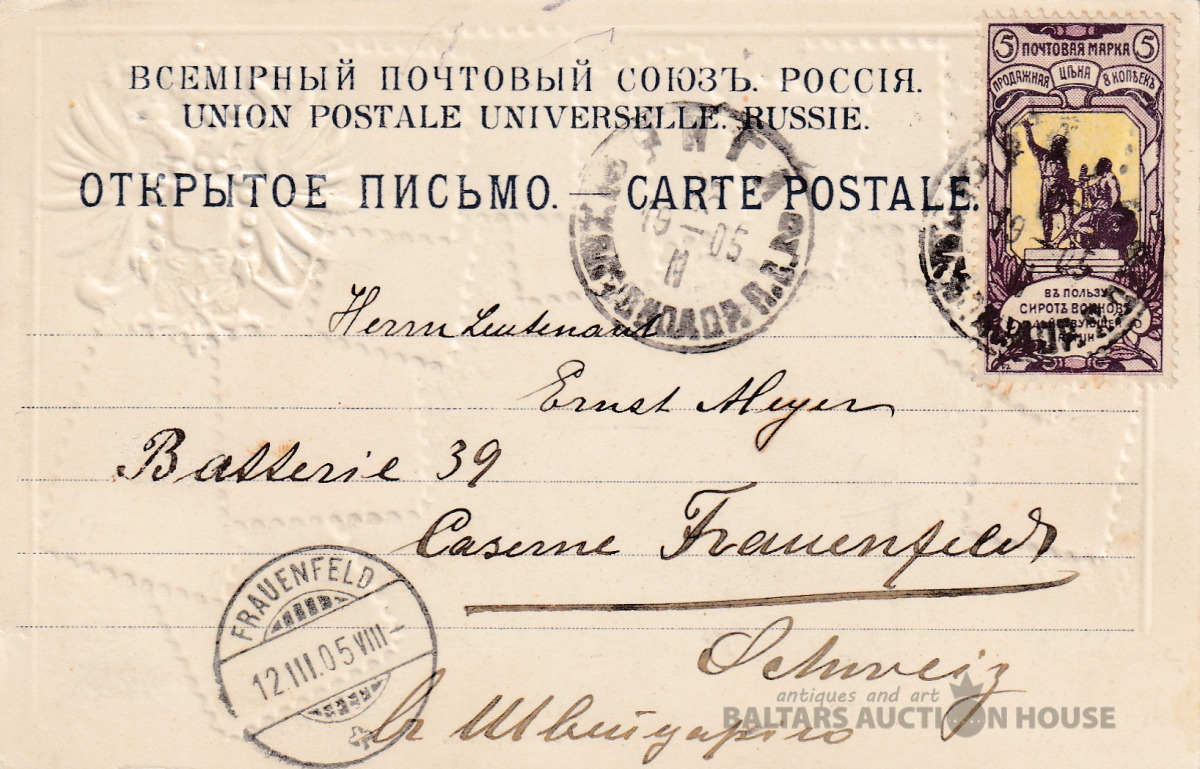 ВСЕМІРНЫЙ ПОЧТОВЫЙ СОЮЗЪ. РОССІЯ.
UNION POSTALE UNIVERSELLE. RUSSIE.
ОТКРЫТОЕ ПИСЬМО. — CARTE POSTALE.
5 ПОЧТОВАЯ МАРКА 5
ПРОДАЖНАЯ ЦѢНА В КОПѢЕКЪ
ВЪ ПОЛЬЗУ
СИРОТЪ ВОИНОВЪ
РИГА
19 — 05
II
Herrn Leutenant
Ernst Meyer
Batterie 39
Caserne Frauenfeld
Schweiz
Въ Швейцарію
FRAUENFELD
12.III.05.VIII—
antiques and art
BALTARS AUCTION HOUSE